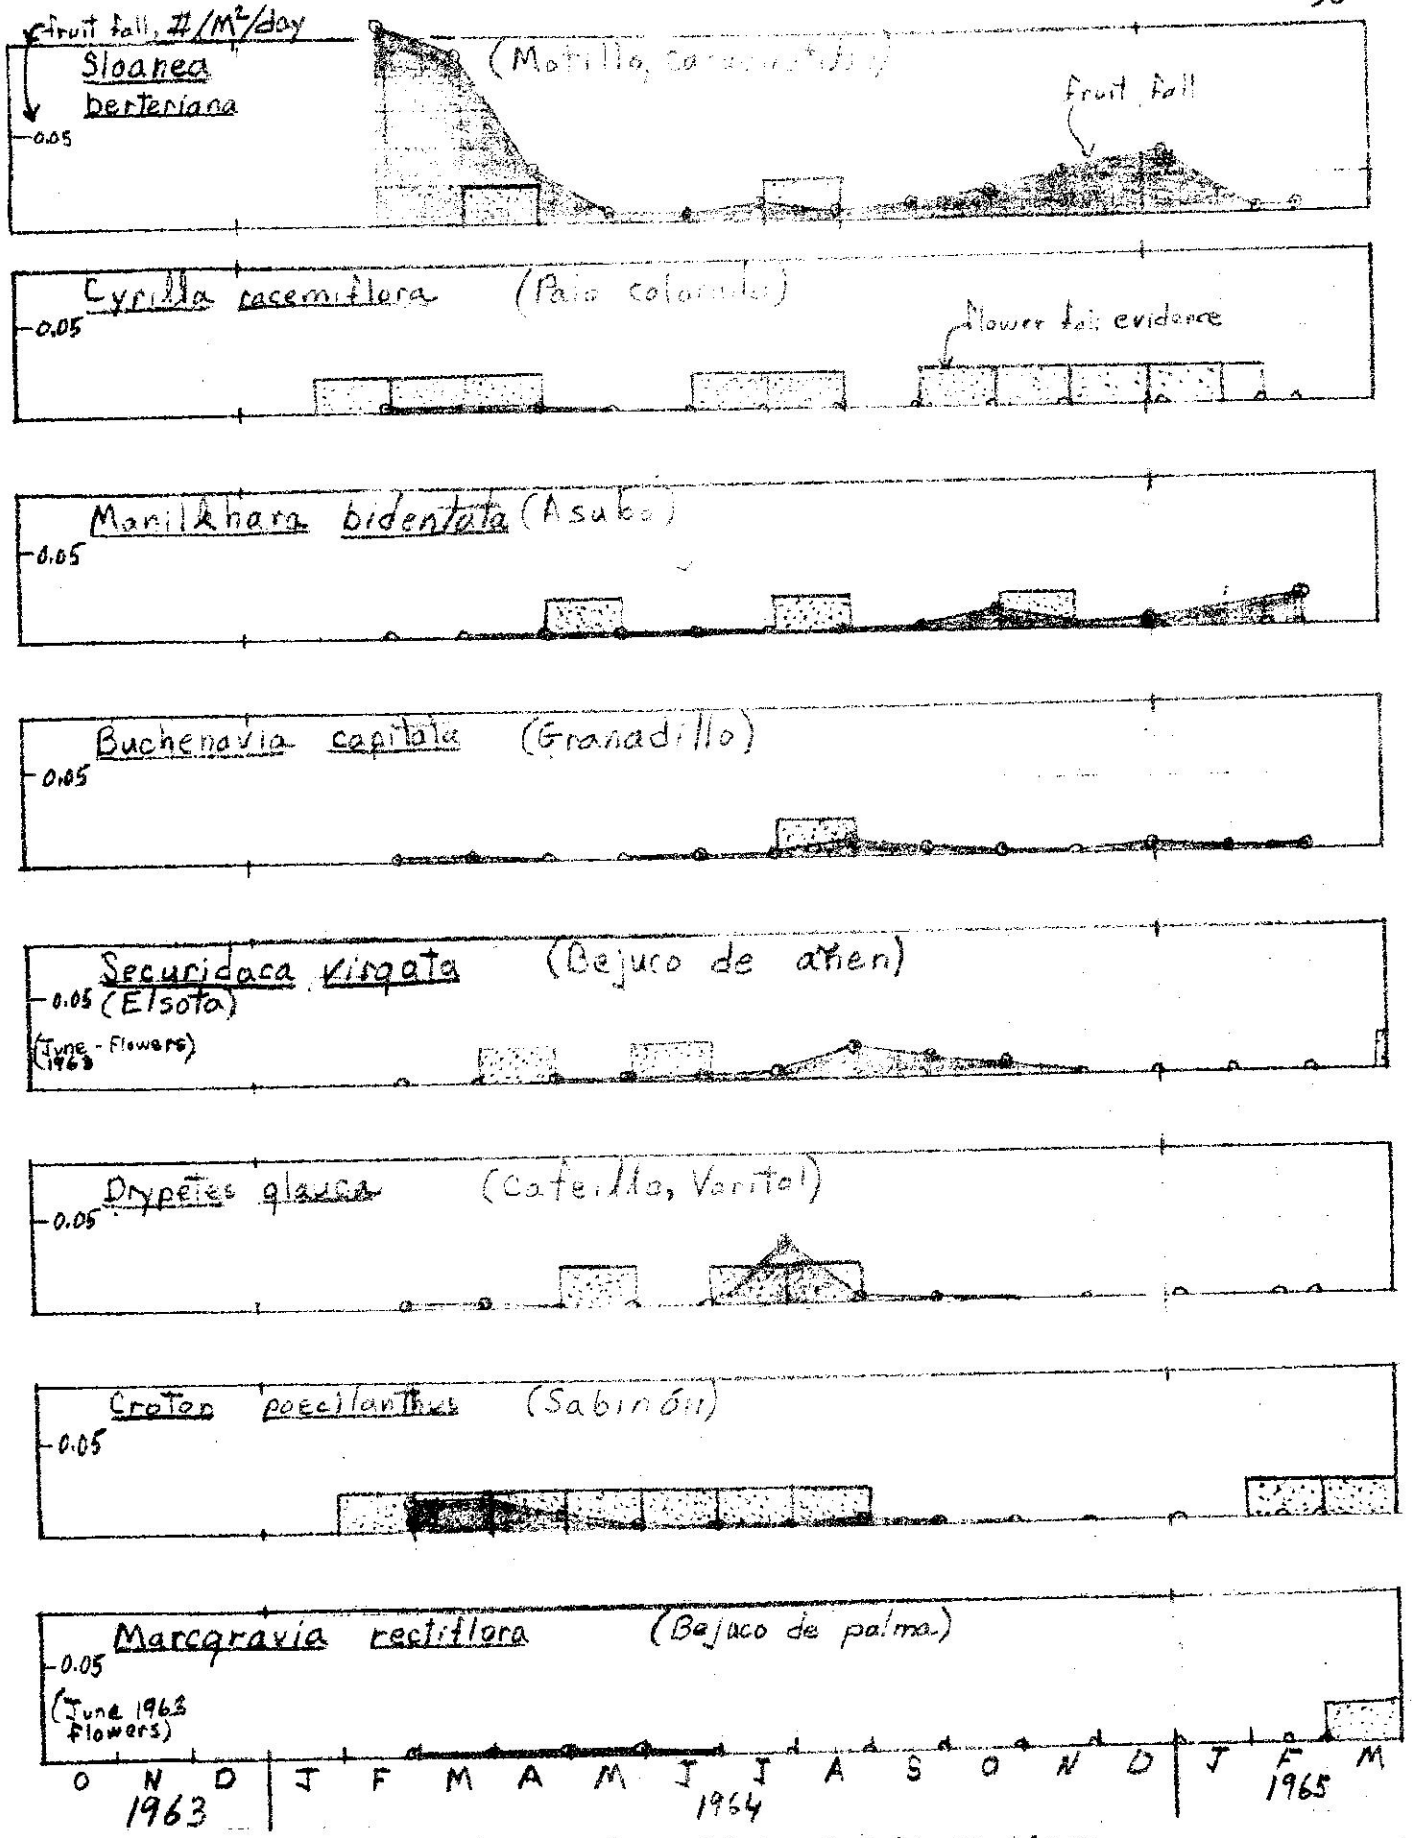 fruit fall, #/M²/day
Sloanea (Motillo,
berteriana
fruit fall
0.05
Cyrilla racemiflora (Palo colorado)
0.05
flower fall evidence
Manilkhara bidentata (Asubo)
0.05
Buchenavia capitata (Granadillo)
0.05
Securidaca virgata (Bejuco de añen)
0.05 (Elsota)
(June - Flowers)
1963
Drypetes glauca (Cafeillo, Varital)
0.05
Croton poecilanthus (Sabinón)
0.05
Marcgravia rectiflora (Bejuco de palma)
0.05
(June 1963
Flowers)
O N D J F M A M J J A S O N D J F M
1963 1964 1965